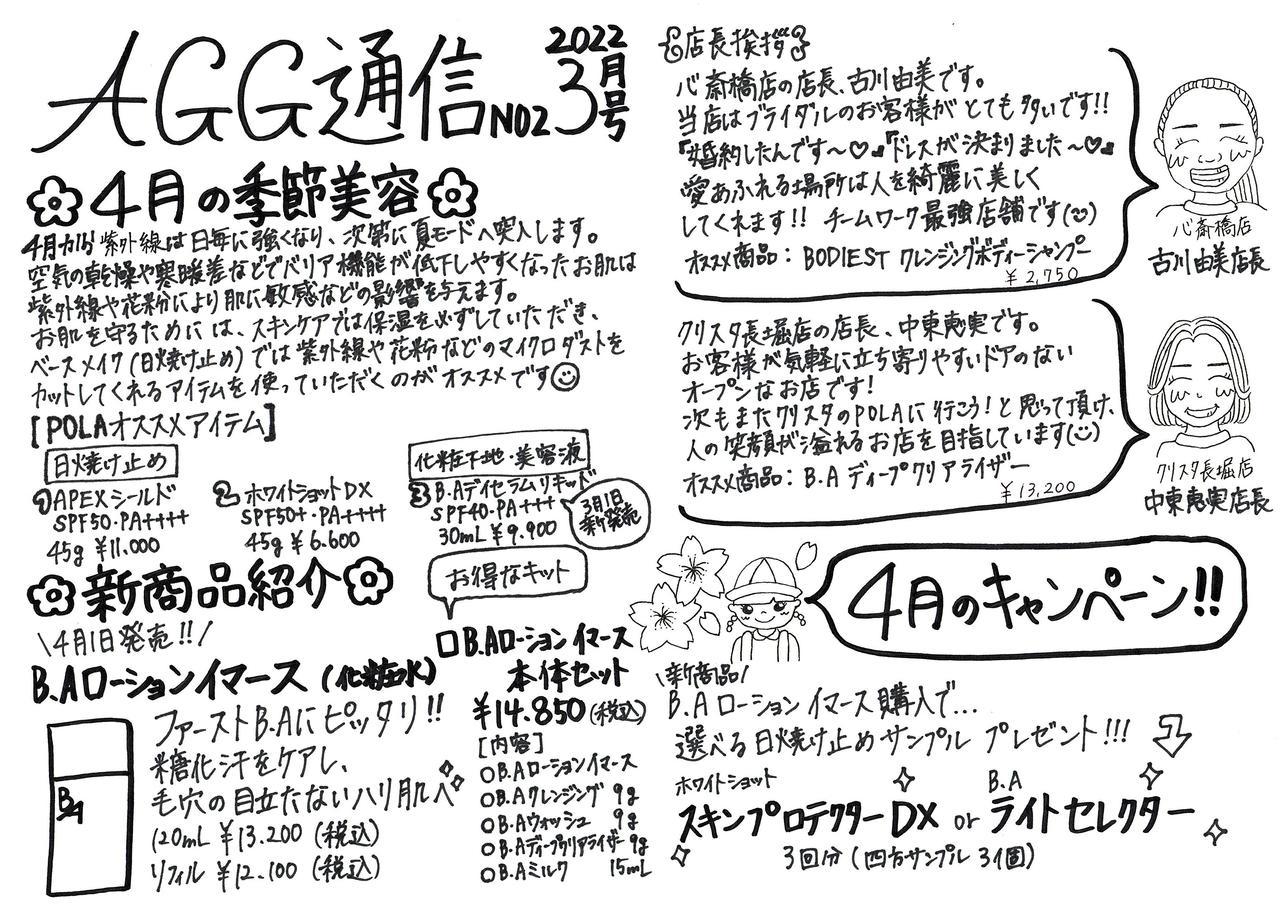 AGG通信 NO2
2022
3月号
4月の季節美容
4月から紫外線は日毎に強くなり、次第に夏モードへ突入します。
空気の乾燥や寒暖差などでバリア機能が低下しやすくなったお肌は
紫外線や花粉により肌に敏感などの影響を与えます。
お肌を守るためには、スキンケアでは保湿を必ずしていただき、
ベースメイク(日焼け止め)では紫外線や花粉などのマイクロダストを
カットしてくれるアイテムを使っていただくのがオススメです
[POLAオススメアイテム]
日焼け止め
①APEXシールド
SPF50・PA++++
45g ¥11.000
②ホワイトショットDX
SPF50+・PA++++
45g ¥6.600
化粧下地・美容液
③B.Aデイセラムリキッド
SPF40・PA+++
30mL ¥9.900
3月1日
新発売
新商品紹介
\4月1日発売!!/
B.Aローションイマース(化粧水)
B.A
ファーストB.Aにピッタリ!!
糖化汗をケアし、
毛穴の目立たないハリ肌へ
120mL ¥13.200(税込)
リフィル ¥12.100(税込)
お得なキット
□B.Aローションイマース
本体セット
¥14.850(税込)
[内容]
○B.Aローションイマース
○B.Aクレンジング 9g
○B.Aウォッシュ 9g
○B.Aディープクリアライザー 9g
○B.Aミルク 15mL
店長挨拶
心斎橋店の店長、古川由美です。
当店はブライダルのお客様がとても多いです!!
『婚約したんです〜♡』『ドレスが決まりました〜♡』
愛あふれる場所は人を綺麗に美しく
してくれます!! チームワーク最強店舗です(◡̈)
オススメ商品:BODIEST クレンジングボディーシャンプー
¥2,750
心斎橋店
古川由美店長
クリスタ長堀店の店長、中東恵実です。
お客様が気軽に立ち寄りやすいドアのない
オープンなお店です!
次もまたクリスタのPOLAに行こう!と思って頂け、
人の笑顔が溢れるお店を目指しています(◡̈)
オススメ商品:B.Aディープクリアライザー
¥13,200
クリスタ長堀店
中東恵実店長
4月のキャンペーン!!
\新商品/
B.Aローションイマース購入で…
選べる日焼け止めサンプル プレゼント!!!
ホワイトショット
スキンプロテクターDX or
B.A
ライトセレクター
3回分(四方サンプル 3個)